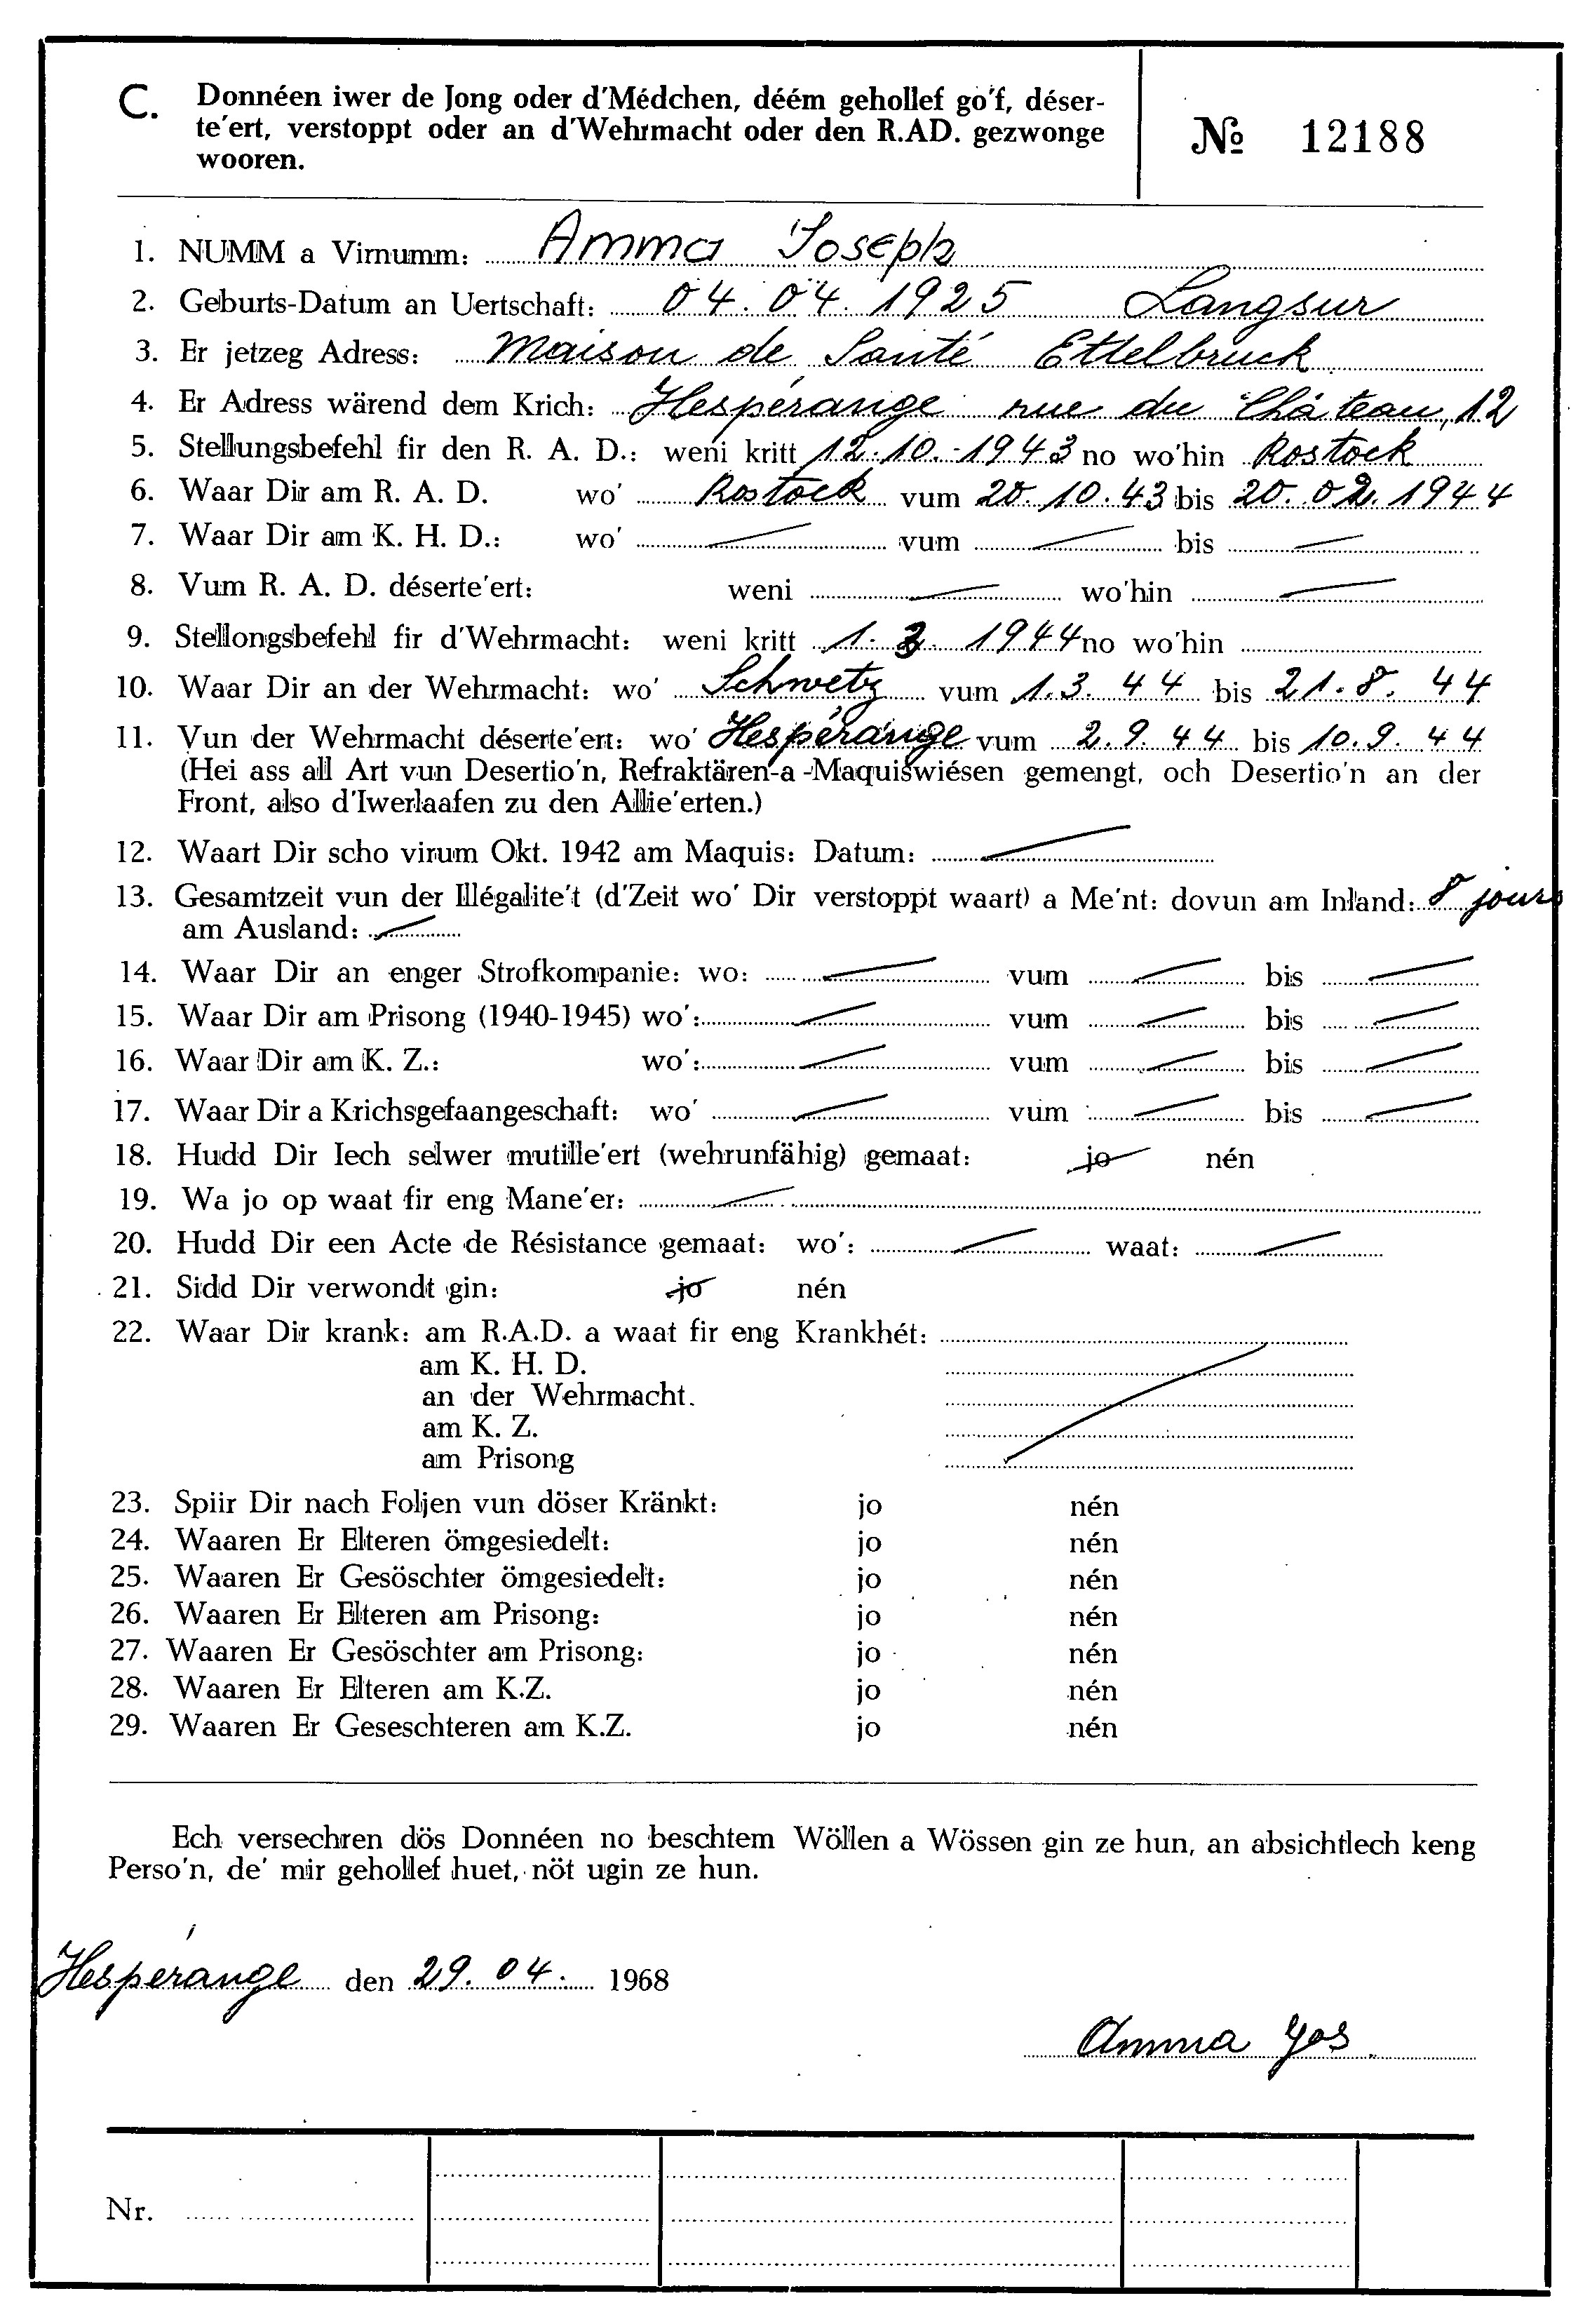 C. Donnéen iwer de Jong oder d'Médchen, déém gehollef go'f, déser-
te'ert, verstoppt oder an d'Wehrmacht oder den R.AD. gezwonge
wooren.
№ 12188
1. NUMM a Virnumm: Amma Joseph
2. Geburts-Datum an Uertschaft: 04. 04. 1925 Langsur
3. Er jetzeg Adress: Maison de Santé Ettelbruck
4. Er Adress wärend dem Krich: Hespérange rue du Château, 12
5. Stellungsbefehl fir den R. A. D.: weni kritt 12.10.-1943 no wo'hin Rostock
6. Waar Dir am R. A. D. wo' Rostock vum 20.10.43 bis 20.02.1944
7. Waar Dir am K. H. D.: wo' — vum — bis —
8. Vum R. A. D. déserte'ert: weni — wo'hin —
9. Stellongsbefehl fir d'Wehrmacht: weni kritt 1. 3. 1944 no wo'hin
10. Waar Dir an der Wehrmacht: wo' Schwetz vum 1.3. 44 bis 21.8. 44
11. Vun der Wehrmacht déserte'ert: wo' Hespérange vum 2.9.44 bis 10.9.44
(Hei ass all Art vun Desertio'n, Refraktären-a -Maquiswiésen gemengt, och Desertio'n an der
Front, also d'Iwerlaafen zu den Allie'erten.)
12. Waart Dir scho virum Okt. 1942 am Maquis: Datum: —
13. Gesamtzeit vun der Illégalite't (d'Zeit wo' Dir verstoppt waart) a Me'nt: dovun am Inland: 8 jours
am Ausland: —
14. Waar Dir an enger Strofkompanie: wo: — vum — bis —
15. Waar Dir am Prisong (1940-1945) wo': — vum — bis —
16. Waar Dir am K. Z.: wo': — vum — bis —
17. Waar Dir a Krichsgefaangeschaft: wo' — vum — bis —
18. Hudd Dir Iech selwer mutille'ert (wehrunfähig) gemaat: jo nén
19. Wa jo op waat fir eng Mane'er: —
20. Hudd Dir een Acte de Résistance gemaat: wo': — waat: —
21. Sidd Dir verwondt gin: jo nén
22. Waar Dir krank: am R.A.D. a waat fir eng Krankhét:
am K. H. D.
an der Wehrmacht.
am K. Z.
am Prisong
23. Spiir Dir nach Foljen vun döser Kränkt: jo nén
24. Waaren Er Elteren ömgesiedelt: jo nén
25. Waaren Er Gesöschter ömgesiedelt: jo nén
26. Waaren Er Elteren am Prisong: jo nén
27. Waaren Er Gesöschter am Prisong: jo nén
28. Waaren Er Elteren am K.Z. jo nén
29. Waaren Er Geseschteren am K.Z. jo nén
Ech versechren dös Donnéen no beschtem Wöllen a Wössen gin ze hun, an absichtlech keng
Perso'n, de' mir gehollef huet, nöt ugin ze hun.
Hespérange den 29. 04. 1968
Amma Jos
Nr.